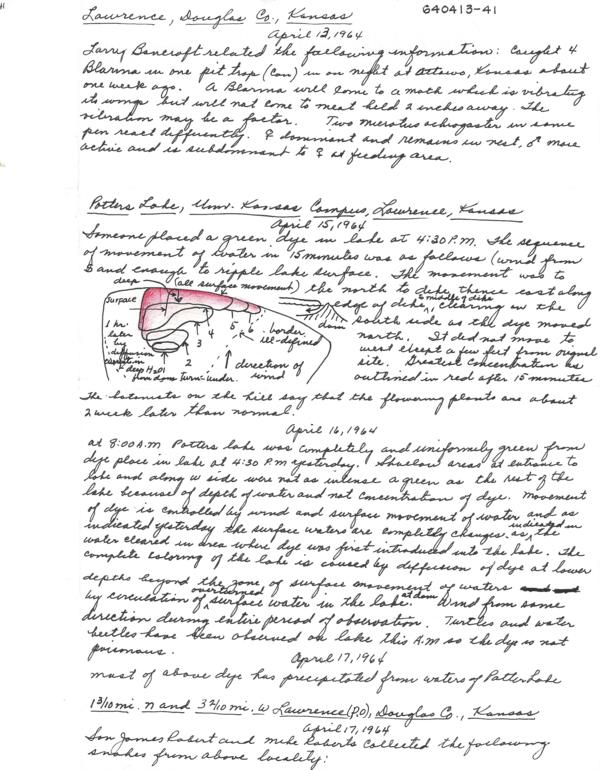 640413-41
Lawrence, Douglas Co., Kansas
April 13, 1964
Larry Bancroft related the following information: Caught 4
Blarina in one pit trap (can) in on neght at Ottawa, Kansas about
one week ago. A Blarina will come to a moth which is vibrating
its wings but will not come to meat held 2 inches away. The
vibration may be a factor. Two microtus ochrogaster in same
pen react differently. ♀ dominant and remains in nest, ♂ more
active and is subdominant to ♀ at feeding area.
Potters Lake, Univ. Kansas Campus, Lawrence, Kansas
April 15, 1964
Someone placed a green dye in lake at 4:30 P.M. The sequence
of movement of water in 15 minutes was as follows (wind from
S and enough to ripple lake surface. The movement was to
deep (all surface movement) the north to dike, thence east along
edge of dike to middle of dike, clearing on the
south side as the dye moved
north. It did not move to
west except a few feet from original
site. Greatest concentration is
outlined in red after 15 minutes
surface
1 hr.
later
by
diffusion
deep H2O
from dam turn-under.
2
3
4
5
6
border
ill-defined
dam
direction of
wind
The botanists on the hill say that the flowering plants are about
2 week later than normal.
April 16, 1964
at 8:00 A.M Potters lake was completely and uniformely green from
dye place in lake at 4:30 P.M yesterday. Shallow areas at entrance to
lake and along W side were not as intense a green as the rest of the
lake because of depth of water and not concentration of dye. Movement
of dye is controlled by wind and surface movement of water and as
indicated yesterday the surface waters are completly changes as indicated in the
water cleared in area where dye was first introduced into the lake. The
complete coloring of the lake is caused by diffusion of dye at lower
depths beyond the zone of surface movement of waters
by circulation of overturned surface water in the lake at dam. Wind from same
direction during entire period of observation. Turtles and water
beetles have been observed on lake this A.M so the dye is not
poisonous.
April 17, 1964
most of above dye has precipitated from waters of Potter Lake
1 3/10 mi. N and 3 2/10 mi. W Lawrence (P.O), Douglas Co., Kansas
April 17, 1964
Son James Robert and Mike Roberts collected the following
snakes from above locality: